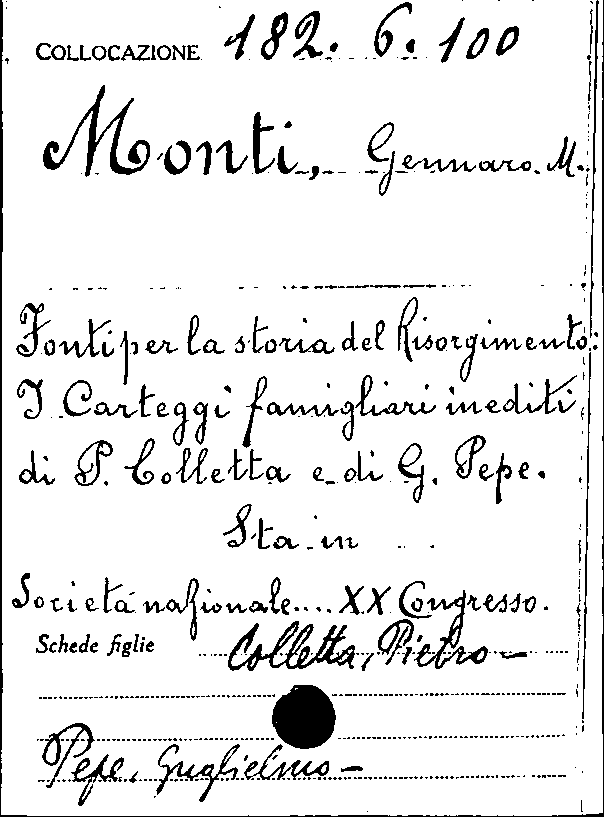 COLLOCAZIONE 182. 6. 100
Monti, Gennaro. M.
Fonti per la storia del Risorgimento:
I Carteggi famigliari inediti
di P. Colletta e di G. Pepe.
Sta in
Societá nazionale.... XX Congresso.
Schede figlie Colletta, Pietro —
Pepe, Guglielmo —